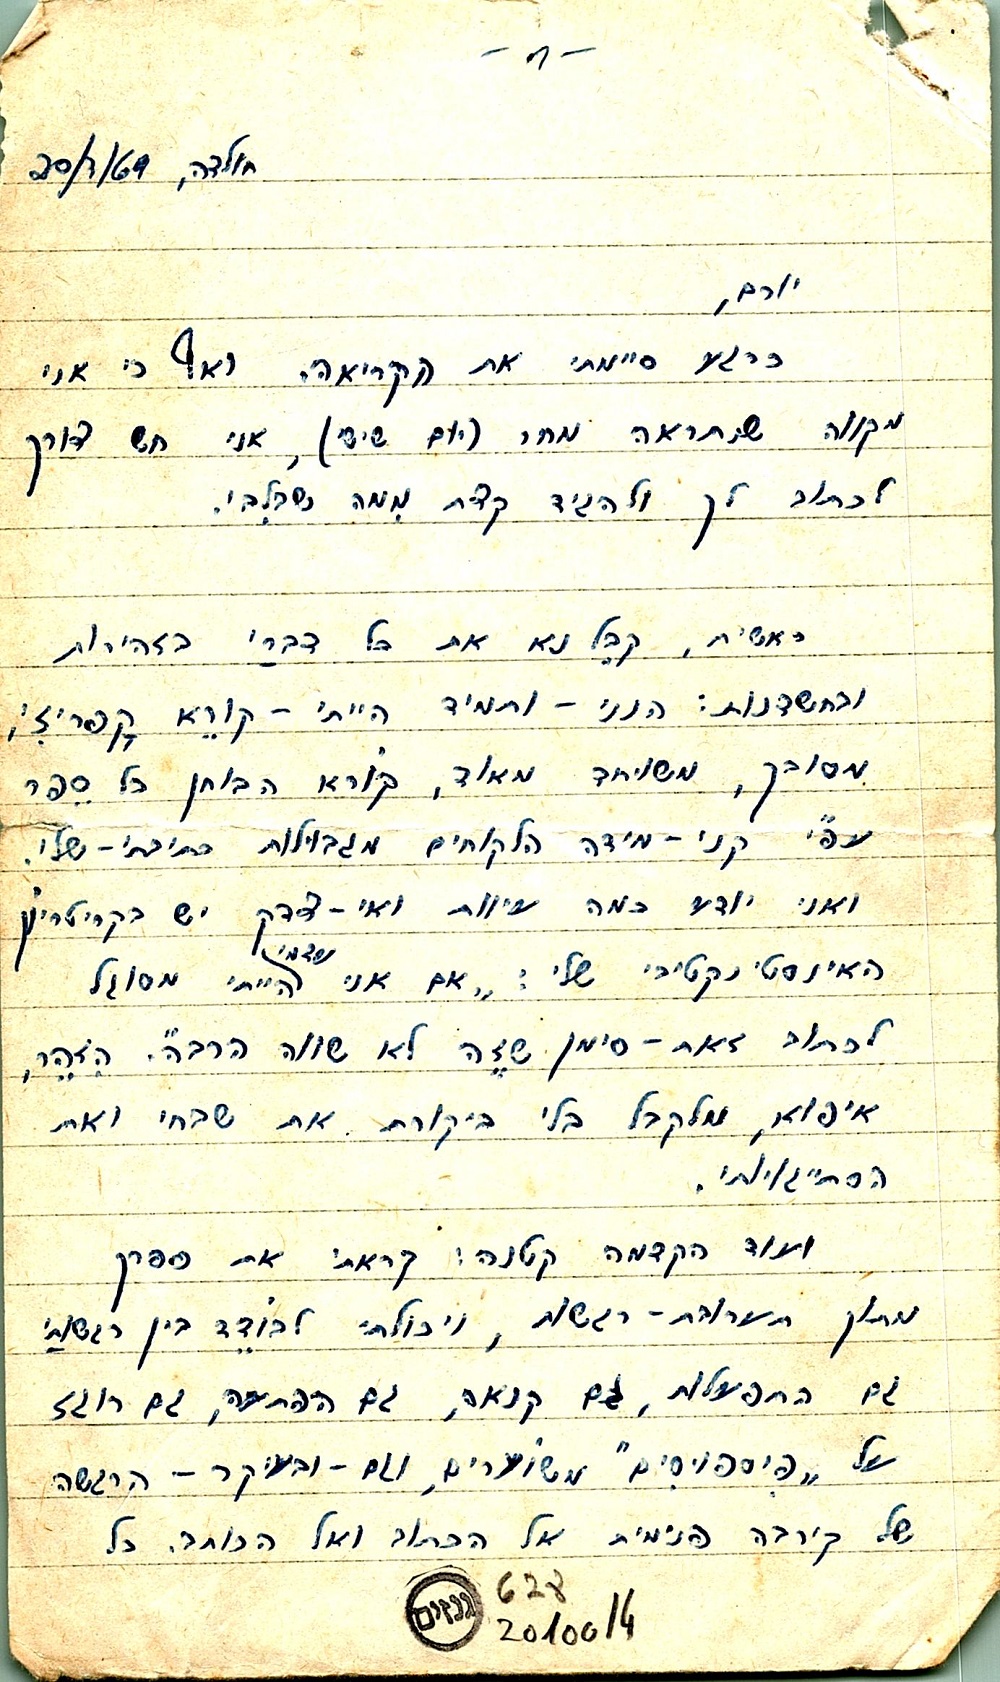 - א -
חולדה,
יורם,
כרגע סיימתי את הקריאה. ואף כי אני
מקווה שנתראה מחר (יום שישי), אני חש צורך
לכתוב לך ולהגיד קצת מִמה שבלִבי.
ראשית, קבֵּל נא את כל דברַי בזהירות
ובחשדנות: הנני - ותמיד הייתי - קורֵא קָפּריזִי,
מסובך, משוחד מאוד, קורא הבוחן כל סֵפר
עפ"י קני-מידה הלקוחים מגבולות כתיבתי-שלי.
ואני יודע כמה עיוות ואי-צדק יש בקריטריון
האינסטינקטיבי שלי: „אם אני הייתי מסוגל
לכתוב זאת - סימן שזֶה לא שווה הרבה". הִזהֵר,
איפוא, מלקבל בלי ביקורת את שבחי ואת
הסתייגויותי.
ועוד הקדמה קטנה: קראתי את ספרך
מתוך תערובת-רגשות, ויכולתי לבודֵד בין רגשותַי
גם התפעלות, גם קנאה, גם הפתעה, גם רוגז
על „פִיספוּסִים" משוערים, וגם - ובעיקר - הרגשה
של קירבה פנימית אל הכתוב ואל הכותב. כל
גנזים
628
20100/4